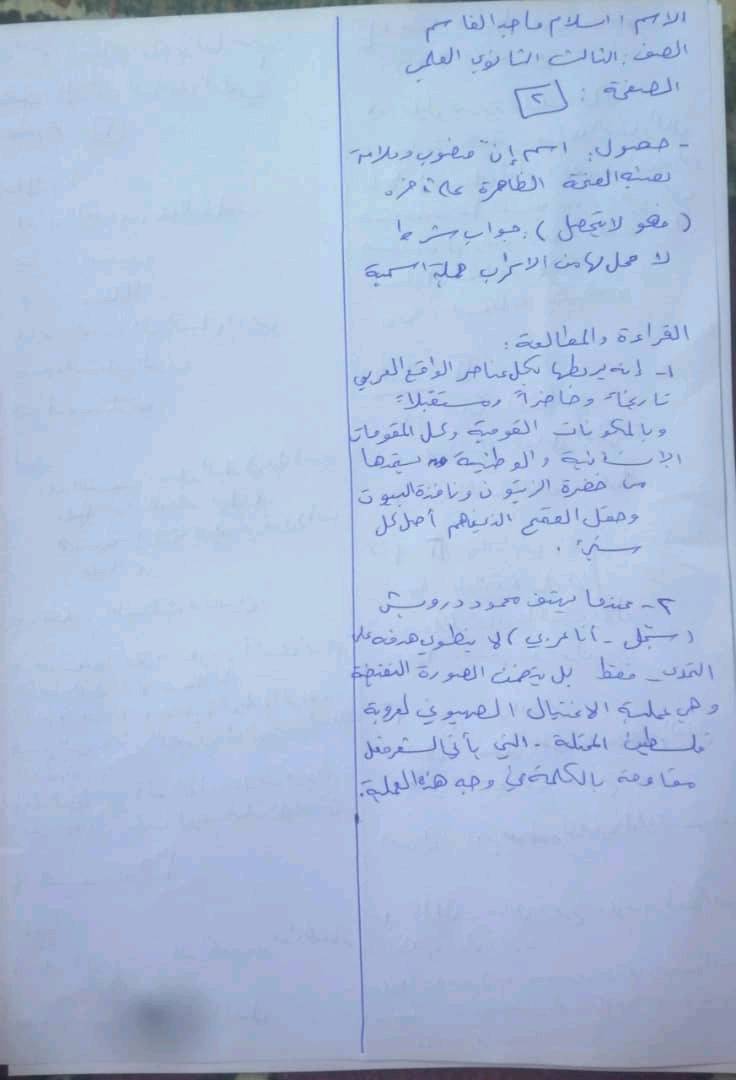 الاسم: اسلام ماجد القاسم
الصف: الثالث الثانوي العلمي
الصفحة: ٢
- حصول: اسم إنّ منصوب وعلامة
نصبه الفتحة الظاهرة على آخره.
(فهو لا يحصل): جواب شرط
لا محل لها من الاعراب جملة اسمية
القراءة والمطالعة:
١- إنه يربطها بكل عناصر الواقع العربي
تاريخاً وحاضراً ومستقبلاً
وبالمكونات القومية وكل المقومات
الإنسانية والوطنية يستمدها
من خضرة الزيتون ونافذة البيوت
وحقل القمح الذي أصل كل
شيء.
٢- عندما يهتف محمود درويش
(سجّل - أنا عربي) لا ينطوي هدفه على
التحدي فقط بل يتضمن الصورة النقيضة
وهي عملية الاغتيال الصهيوني لعروبة
فلسطين المحتلة - التي يأتي الشعر كفعل
مقاومة بالكلمة في وجه هذه العملية.